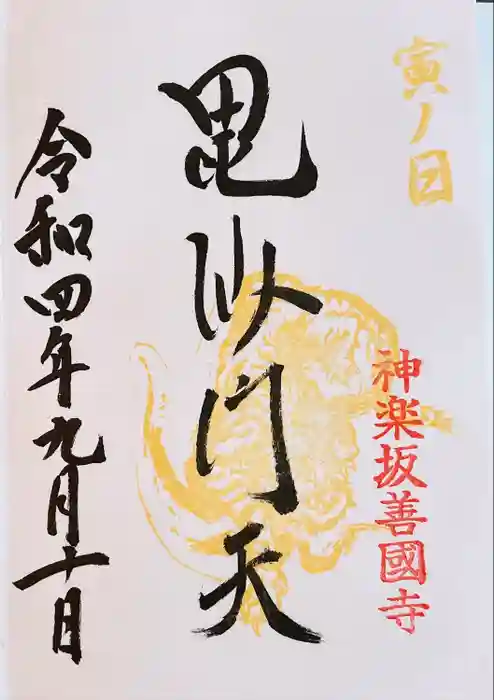 寅ノ日
神楽坂善國寺
毘沙門天
令和四年九月十日